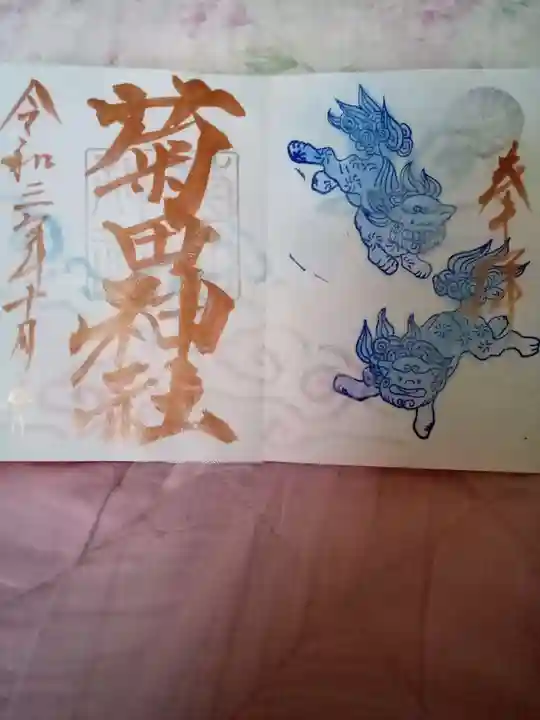 奉拝
菊田神社
令和三年十月